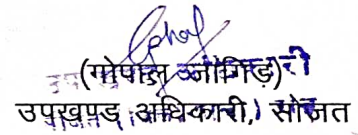 (गोपाल जाँगिड़)
उपखण्ड अधिकारी, सोजत